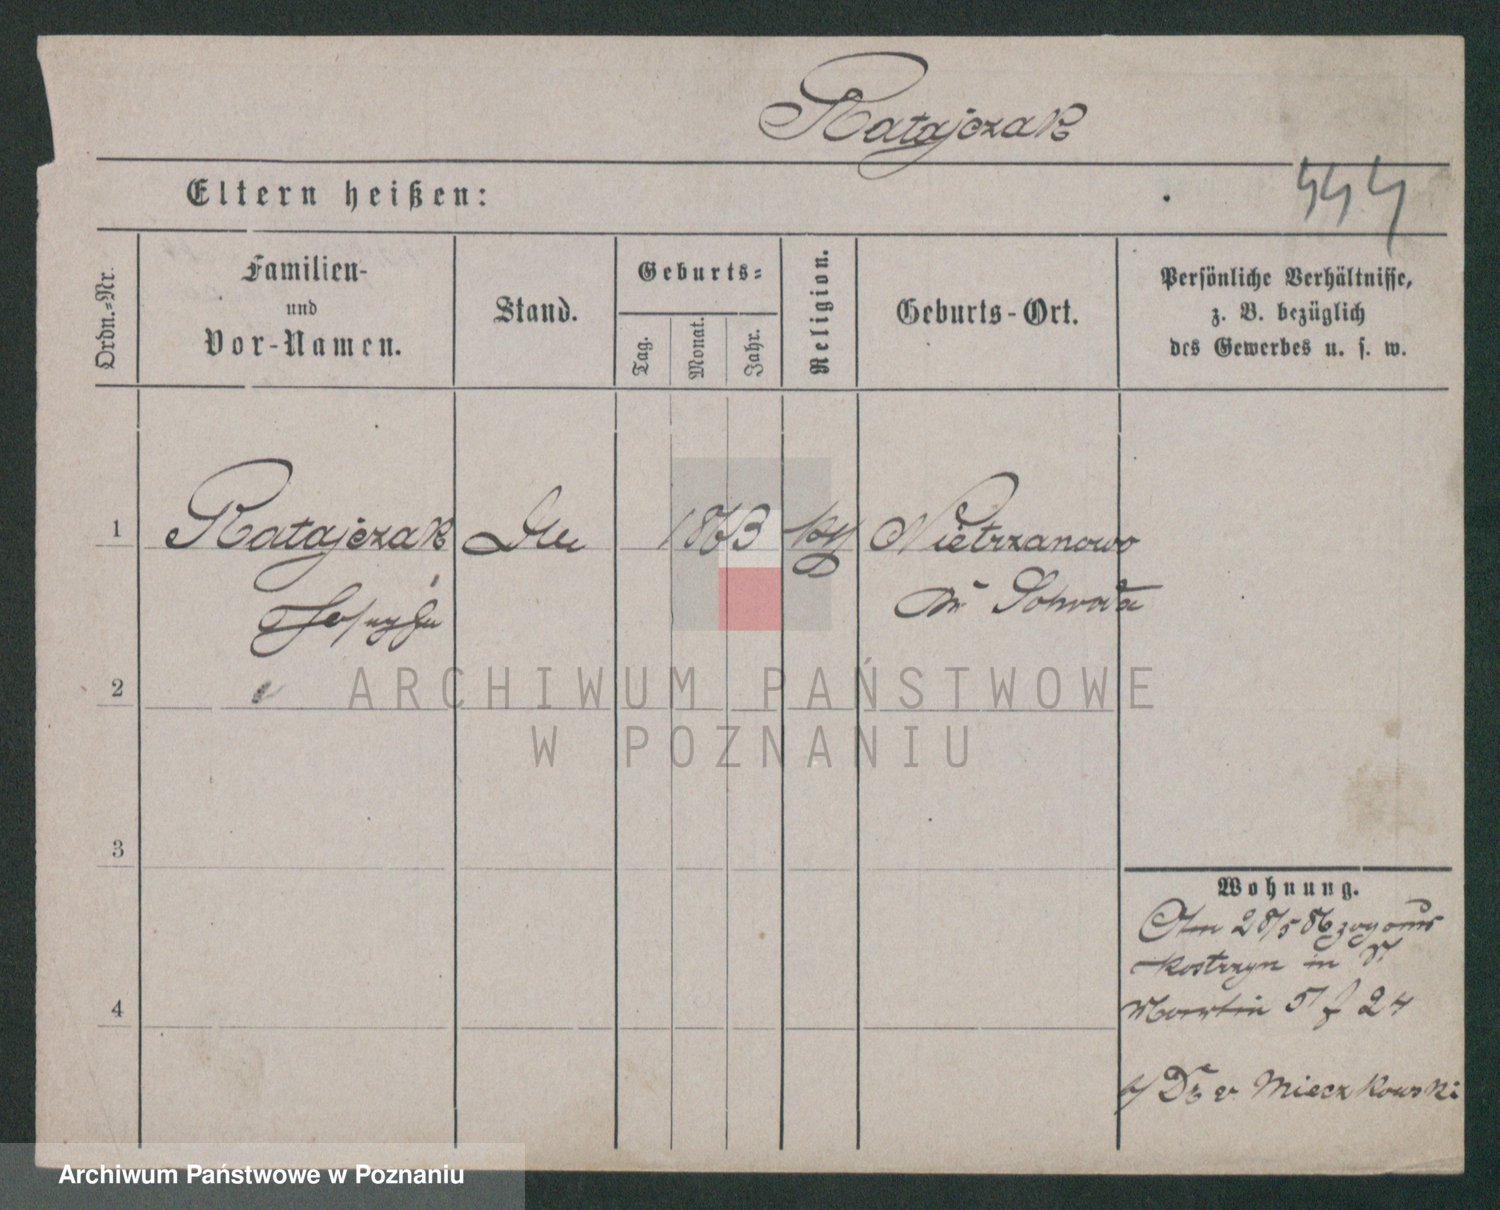 Ratajczak
Eltern heißen:
444
Ordn.=Nr.
Familien-
und
Vor-Namen.
Stand.
Geburts=
Tag.
Monat.
Jahr.
Religion.
Geburts-Ort.
Persönliche Verhältnisse,
z. B. bezüglich
des Gewerbes u. s. w.
1
Ratajczak
1863
Nietrzanowo
Schroda
2
3
4
Wohnung.
28/5 86 zog aus
Kostrzyn in St
Martin 24
b/ Dr v Mieczkowski
ARCHIWUM PAŃSTWOWE
W POZNANIU
Archiwum Państwowe w Poznaniu